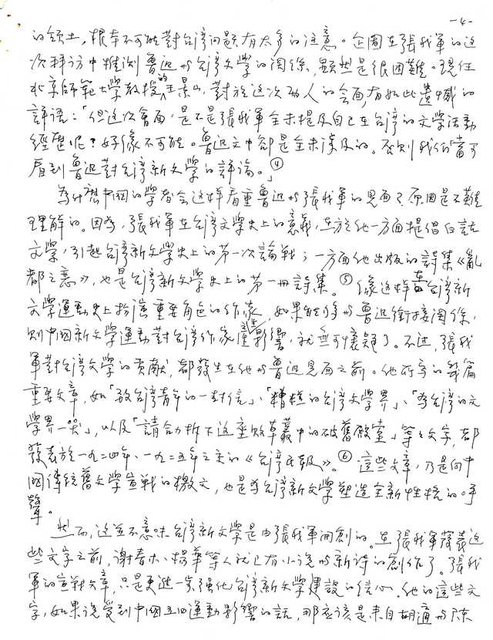 -4-
的領土,根本不可能對台灣問題有太多的注意。企圖在張我軍的這
次拜訪中推測魯迅與台灣文學的關係,顯然是很困難。現任
北京師範大學教授的王景山,對於這次動人的會面有如此遺憾的
評語:「但這次會面,是不是張我軍全未提及自己在台灣的文學活動
經歷呢?好像不可能。魯迅文中卻是全未涉及的。否則我們當可
看到魯迅對台灣新文學的評論。」④
為什麼中國的學者會這樣看重魯迅與張我軍的見面?原因是不難
理解的。因為,張我軍在台灣文學史上的意義,在於他一方面提倡白話
文學,引起台灣新文學史上的第一次論戰;一方面他出版的詩集《亂
都之戀》,也是台灣新文學史上的第一冊詩集。⑤像這樣在台灣新
文學運動史上扮演重要角色的作家,如果能夠與魯迅銜接關係,
則中國新文學運動對台灣作家產生影響,就無可懷疑了。不過,張我
軍對台灣文學的貢獻,都發生在他與魯迅見面之前。他所寫的幾篇
重要文章,如「致台灣青年的一封信」、「糟糕的台灣文學界」、「為台灣的文
學界一哭」,以及「請合力拆下這座敗草叢中的破舊殿堂」等等文字,都
發表於一九二四年、一九二五年之交的《台灣民報》。⑥這些文章,乃是向中
國傳統舊文學宣戰的檄文,也是為台灣新文學塑造全新性格的先
聲。
然而,這並不意味台灣新文學是由張我軍開創的。在張我軍發表這
些文字之前,謝春木、楊華等人就已有小說與新詩的創作了。張我
軍的宣戰文章,只是更進一步強化台灣新文學建設的信心。他的這些文
字,如果說受到中國五四運動影響的話,那應該是來自胡適與陳